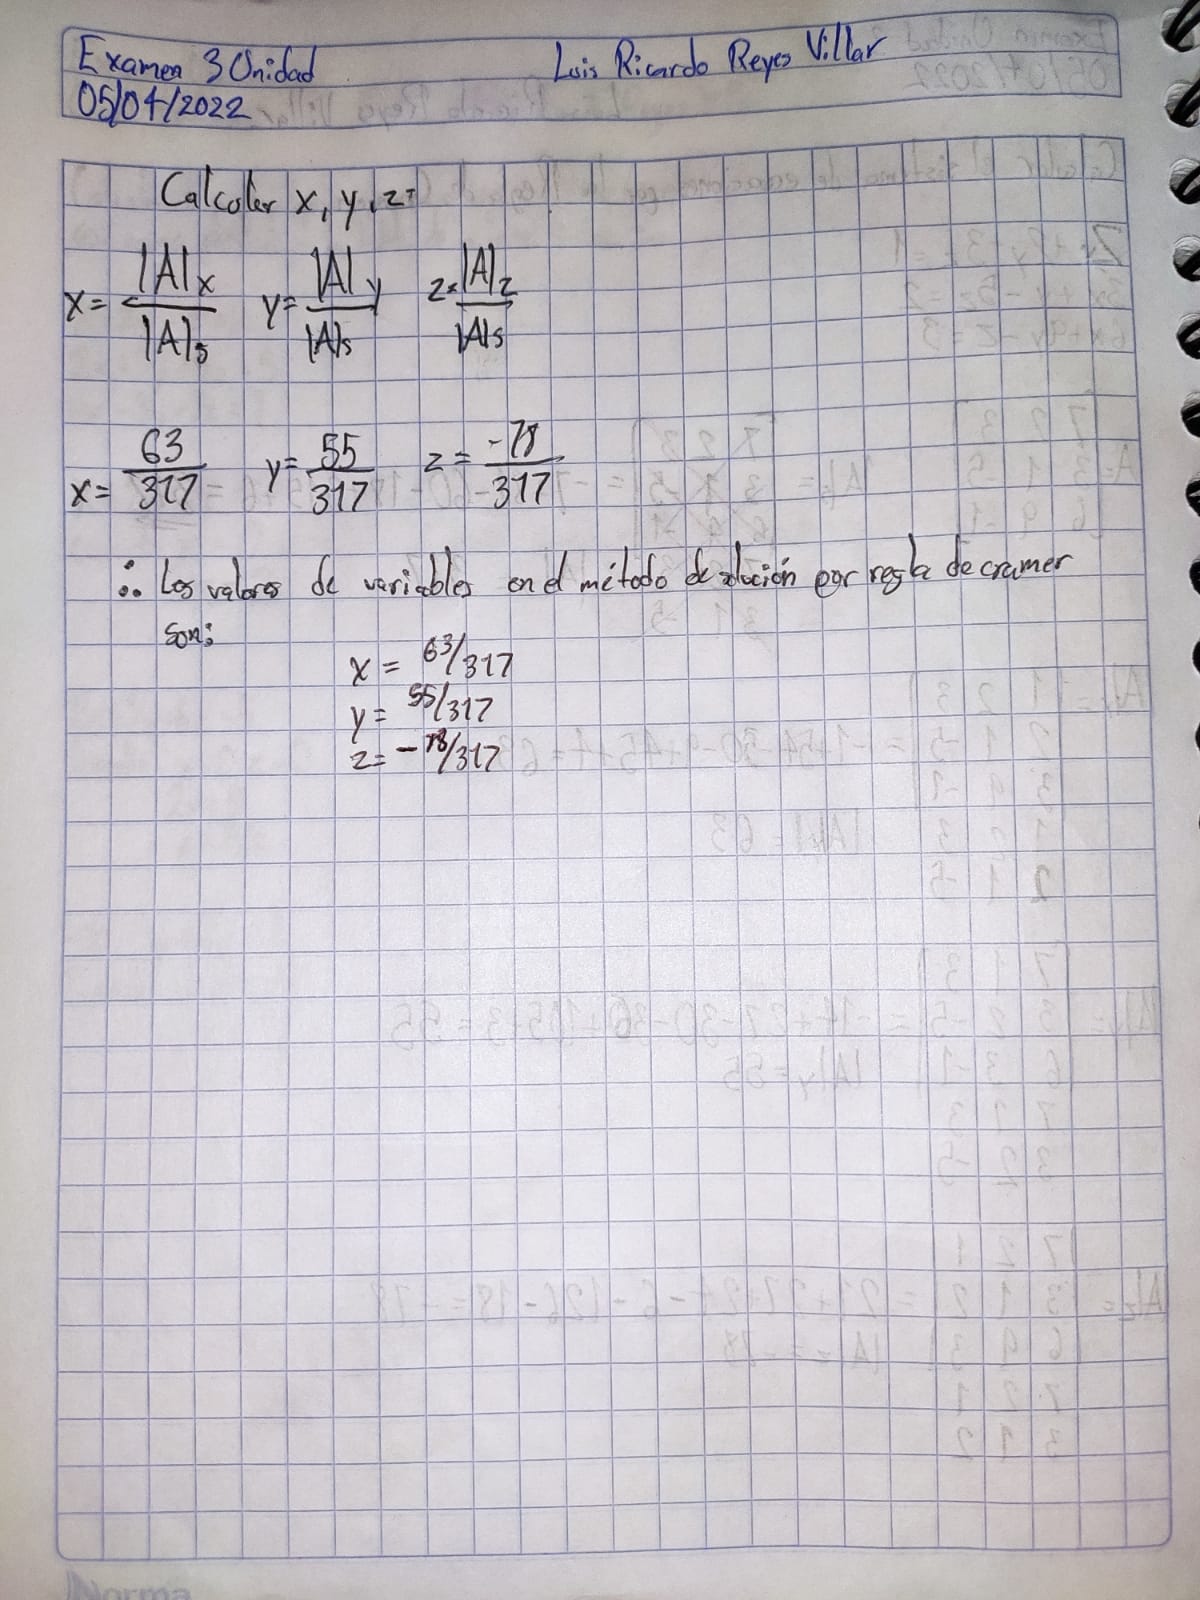 Examen 3 Unidad Luis Ricardo Reyes Villar
05/04/2022
Calcular x, y, z=
x= |A|x / |A|s y= |A|y / |A|s z= |A|z / |A|s
x= 63/317 y= 55/317 z= -78/317
∴ Los valores de variables en el método de solución por regla de cramer
son:
x = 63/317
y = 55/317
z = -78/317
Norma